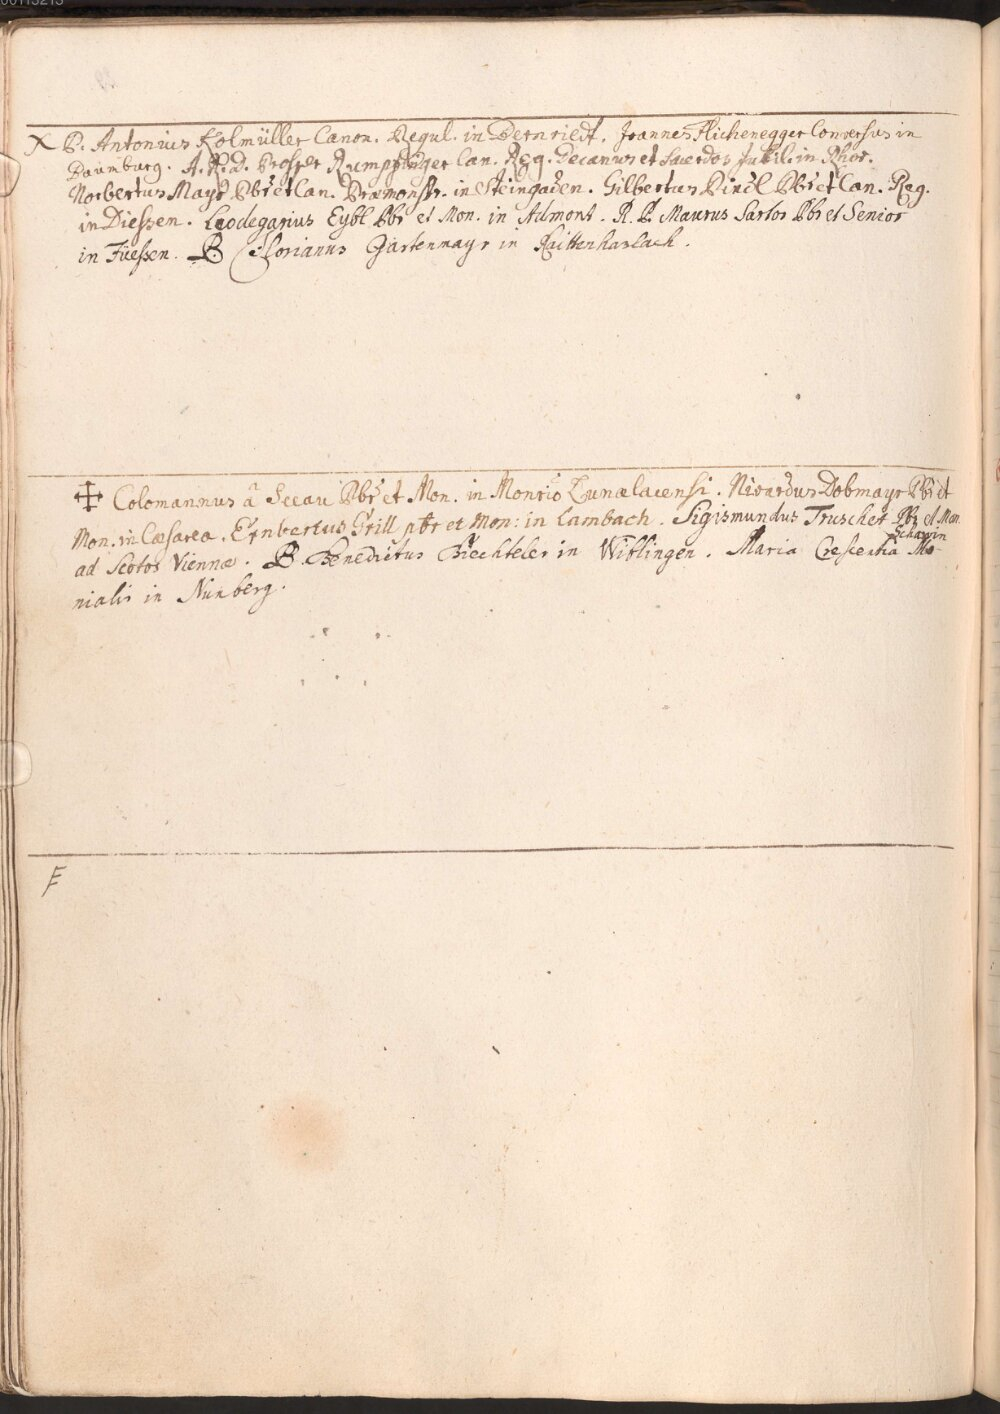 00113213
X P. Antonius Kolmüller Canon. Regul. in Bernriedt. Joannes Flichenegger Conversus in
Baumburg. A. R. D. Prosper Rumpfinger Can. Reg. Decanus et Sacerdos Jubil. in Rhor.
Norbertus Mayr Pbr et Can. Præmonstr. in Steingaden. Gilbertus Pindl Pbr et Can. Reg.
in Diessen. Leodegarius Eybl Pbr et Mon. in Admont. R. P. Maurus Sartor Pbr et Senior
in Füessen. P. Florianus Gartenmayr in Raittenhaslach.
Colomannus à Seeau Pbr et Mon. in Monrio Lunælacensi. Nivardus Dobmayr Pbr et
Mon. in Cæsarea. Ernbertus Grill pbr et Mon: in Lambach. Sigismundus Truscher Pbr et Mon
ad Scotos Viennæ. P. Benedictus Biechteler in Wiblingen. Maria Crescentia Scharin Mo-
nialis in Nunberg.
F